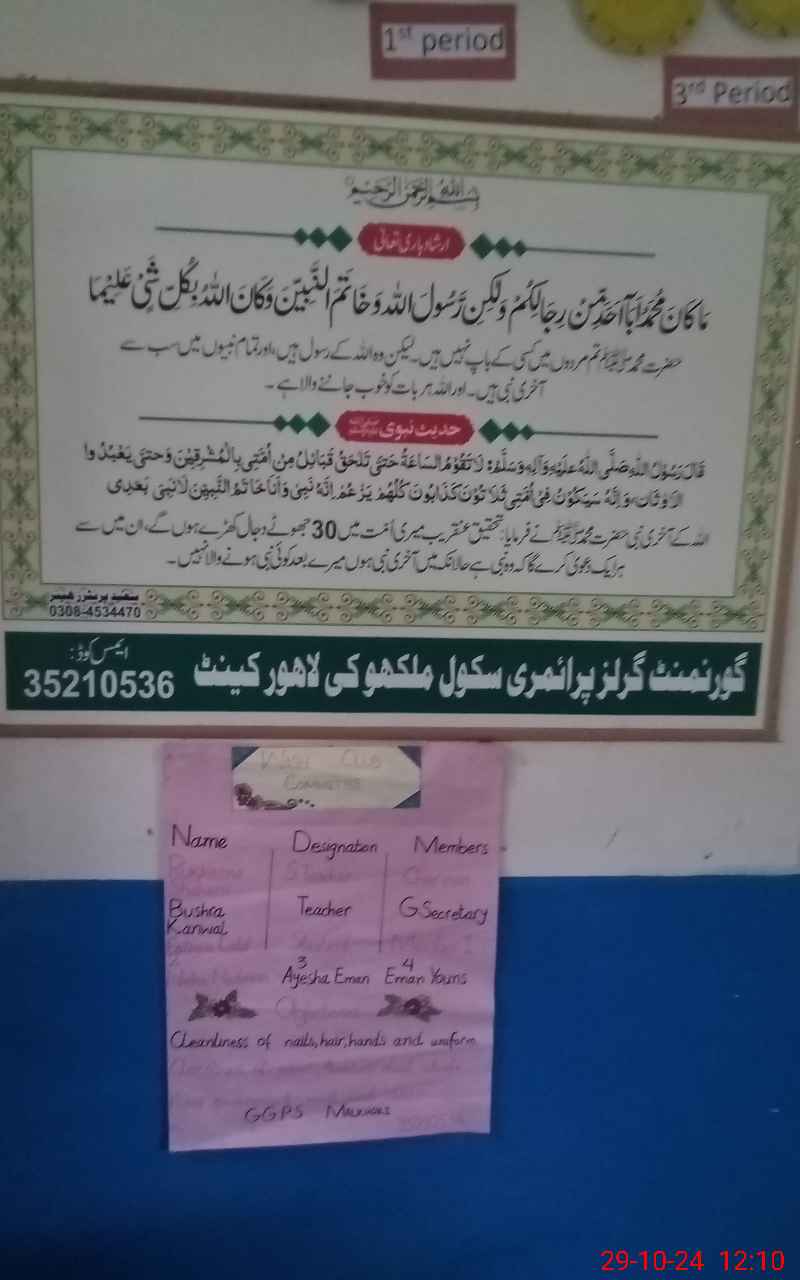 1st period
3rd Period
بسم الله الرحمن الرحيم
ارشاد باری تعالیٰ
مَا كَانَ مُحَمَّدٌ اَبَآ اَحَدٍ مِّنْ رِجَالِكُمْ وَلٰكِنْ رَّسُولَ اللهِ وَخَاتَمَ النَّبِيّٖنَ وَكَانَ اللهُ بِكُلِّ شَيْءٍ عَلِيْمًا
حضرت محمد ﷺ تم مردوں میں کسی کے باپ نہیں ہیں۔ لیکن وہ اللہ کے رسول ہیں، اور تمام نبیوں میں سب سے
آخری نبی ہیں۔ اور اللہ ہر بات کو خوب جاننے والا ہے۔
حدیث نبوی ﷺ
قَالَ رَسُوْلُ اللهِ صَلَّى اللهُ عَلَيْهِ وَآلِهٖ وَسَلَّمَ: لَا تَقُوْمُ السَّاعَةُ حَتّٰى تَلْحَقَ قَبَائِلُ مِنْ اُمَّتِيْ بِالْمُشْرِقِيْنَ وَحَتّٰى يَعْبُدُوا
الْاَوْثَانَ، وَاِنَّهٗ سَيَكُوْنُ فِيْ اُمَّتِيْ ثَلَاثُوْنَ كَذَّابُوْنَ كُلُّهُمْ يَزْعُمُ اِنَّهٗ نَبِيٌّ وَاَنَا خَاتَمُ النَّبِيّٖنَ لَا نَبِيَّ بَعْدِيْ
اللہ کے آخری نبی حضرت محمد ﷺ نے فرمایا: تحقیق عنقریب میری اُمت میں 30 جھوٹے دجال کھڑے ہوں گے، ان میں سے
ہر ایک دعویٰ کرے گا کہ وہ نبی ہے حالانکہ میں آخری نبی ہوں میرے بعد کوئی نبی ہونے والا نہیں۔
سعید پرنٹرز
0308-4534470
گورنمنٹ گرلز پرائمری سکول ملکھو کی لاہور کینٹ
ایمس کوڈ:
35210536
Wash Club
Committee
Name Designation Members
Bushra Kanwal Teacher G Secretary
3 4
Ayesha Eman Eman Youns
Objectives
Cleanliness of nails, hair, hands and uniform
GGPS
29-10-24 12:10